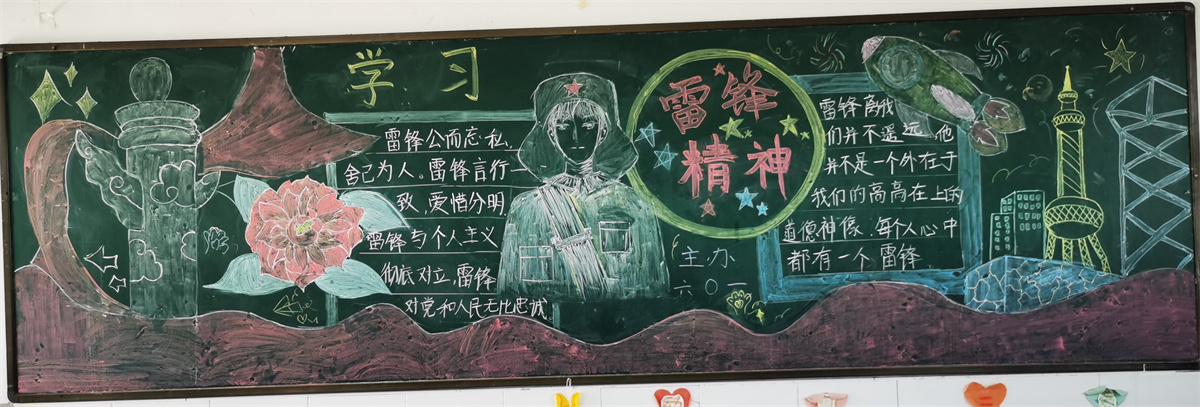 学习
雷锋公而忘私，
舍己为人。雷锋言行一
致，爱憎分明。
雷锋与个人主义
彻底对立，雷锋
对党和人民无比忠诚
雷锋
精神
主办
六〇一
雷锋离我
们并不遥远，他
并不是一个外在于
我们的高高在上的
道德神像，每个人心中
都有一个雷锋